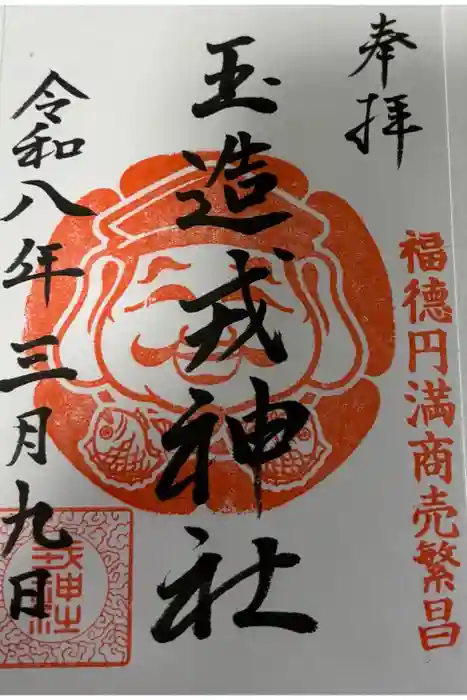 奉拝
福徳円満商売繁昌
玉造戎神社
令和八年三月九日
戎神社